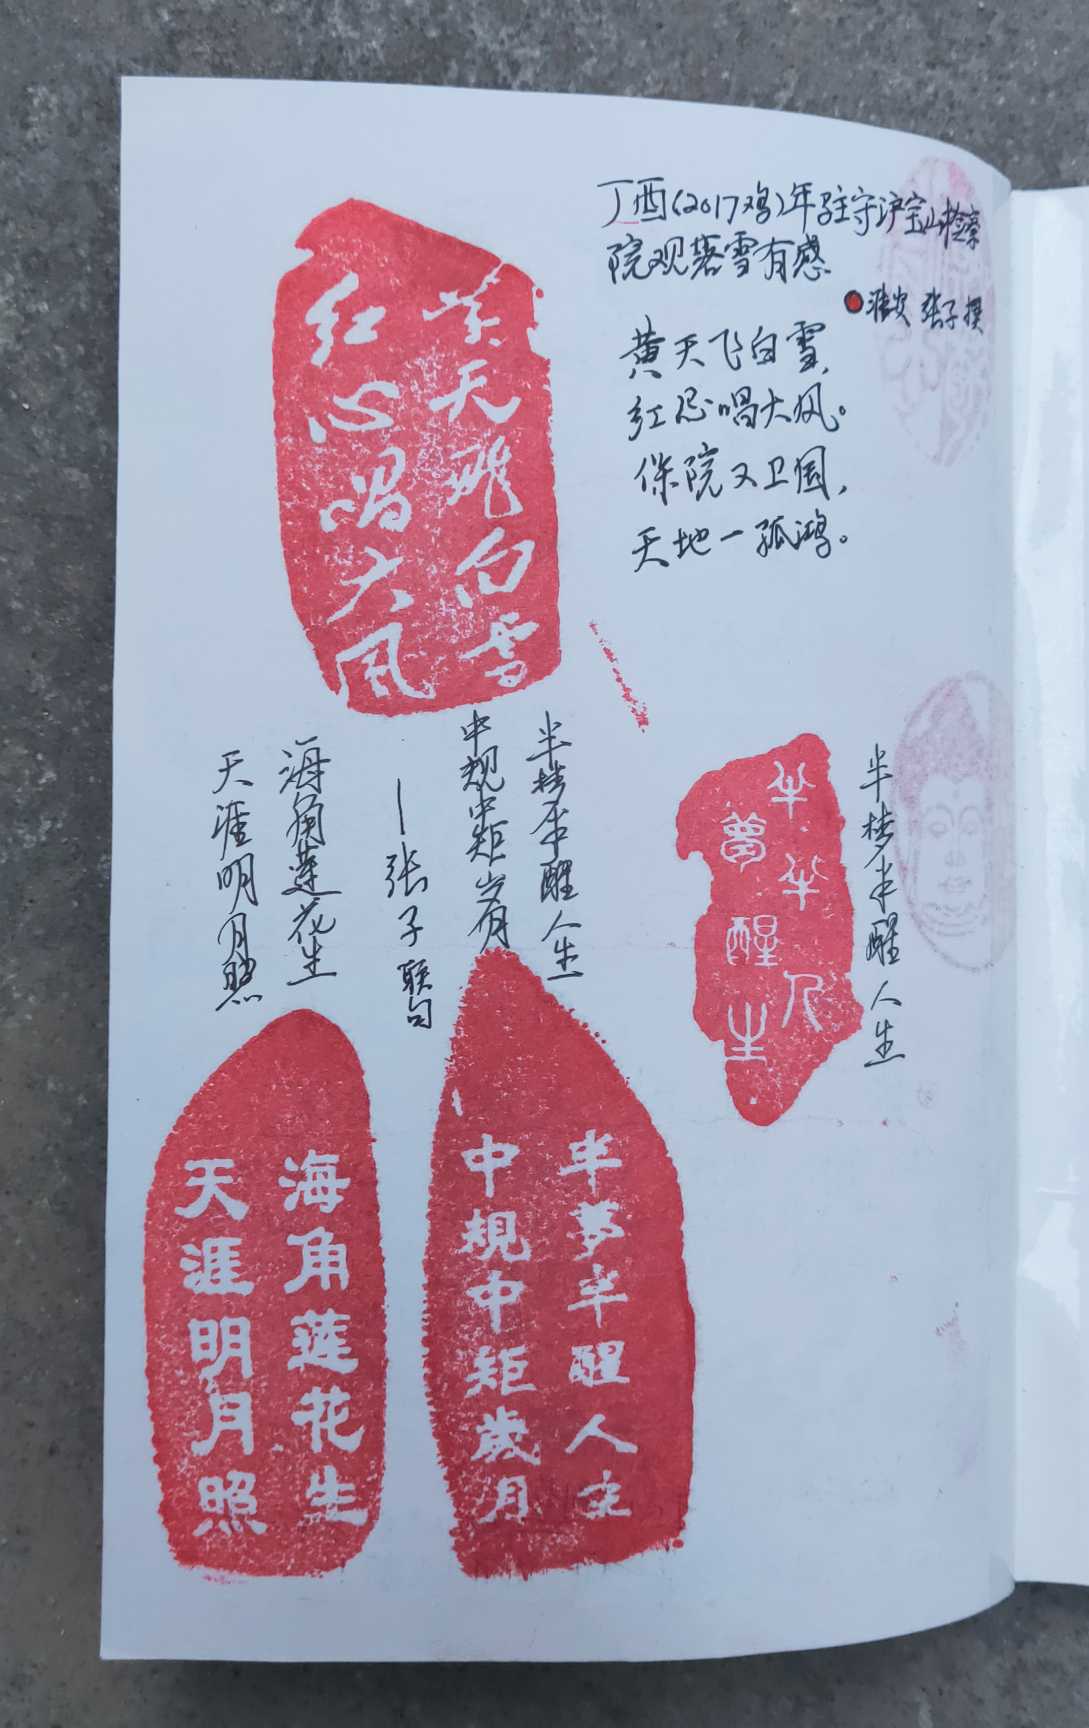 丁酉(2017鸡)年驻守沪宝山检察
院观暮雪有感
淮安 张子 撰
黄天飞白雪，
红忌唱大风。
保院又卫国，
天地一孤鸿。
黄天飛白雪
红心唱大風
半梦半醒人生
半夢半醒人生
半梦半醒人生
中规中矩岁月
—张子联句
海角莲花生
天涯明月照
半夢半醒人生
中規中矩歲月
海角莲花生
天涯明月照